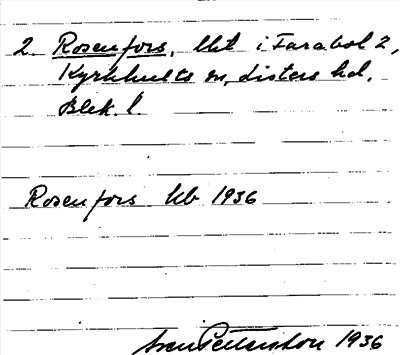 2 Rosenfors, lht i Farabol 2,
Kyrkhults sn, Listers hd,
Blek. l.
Rosenfors kb 1936
Sven Petterson 1936